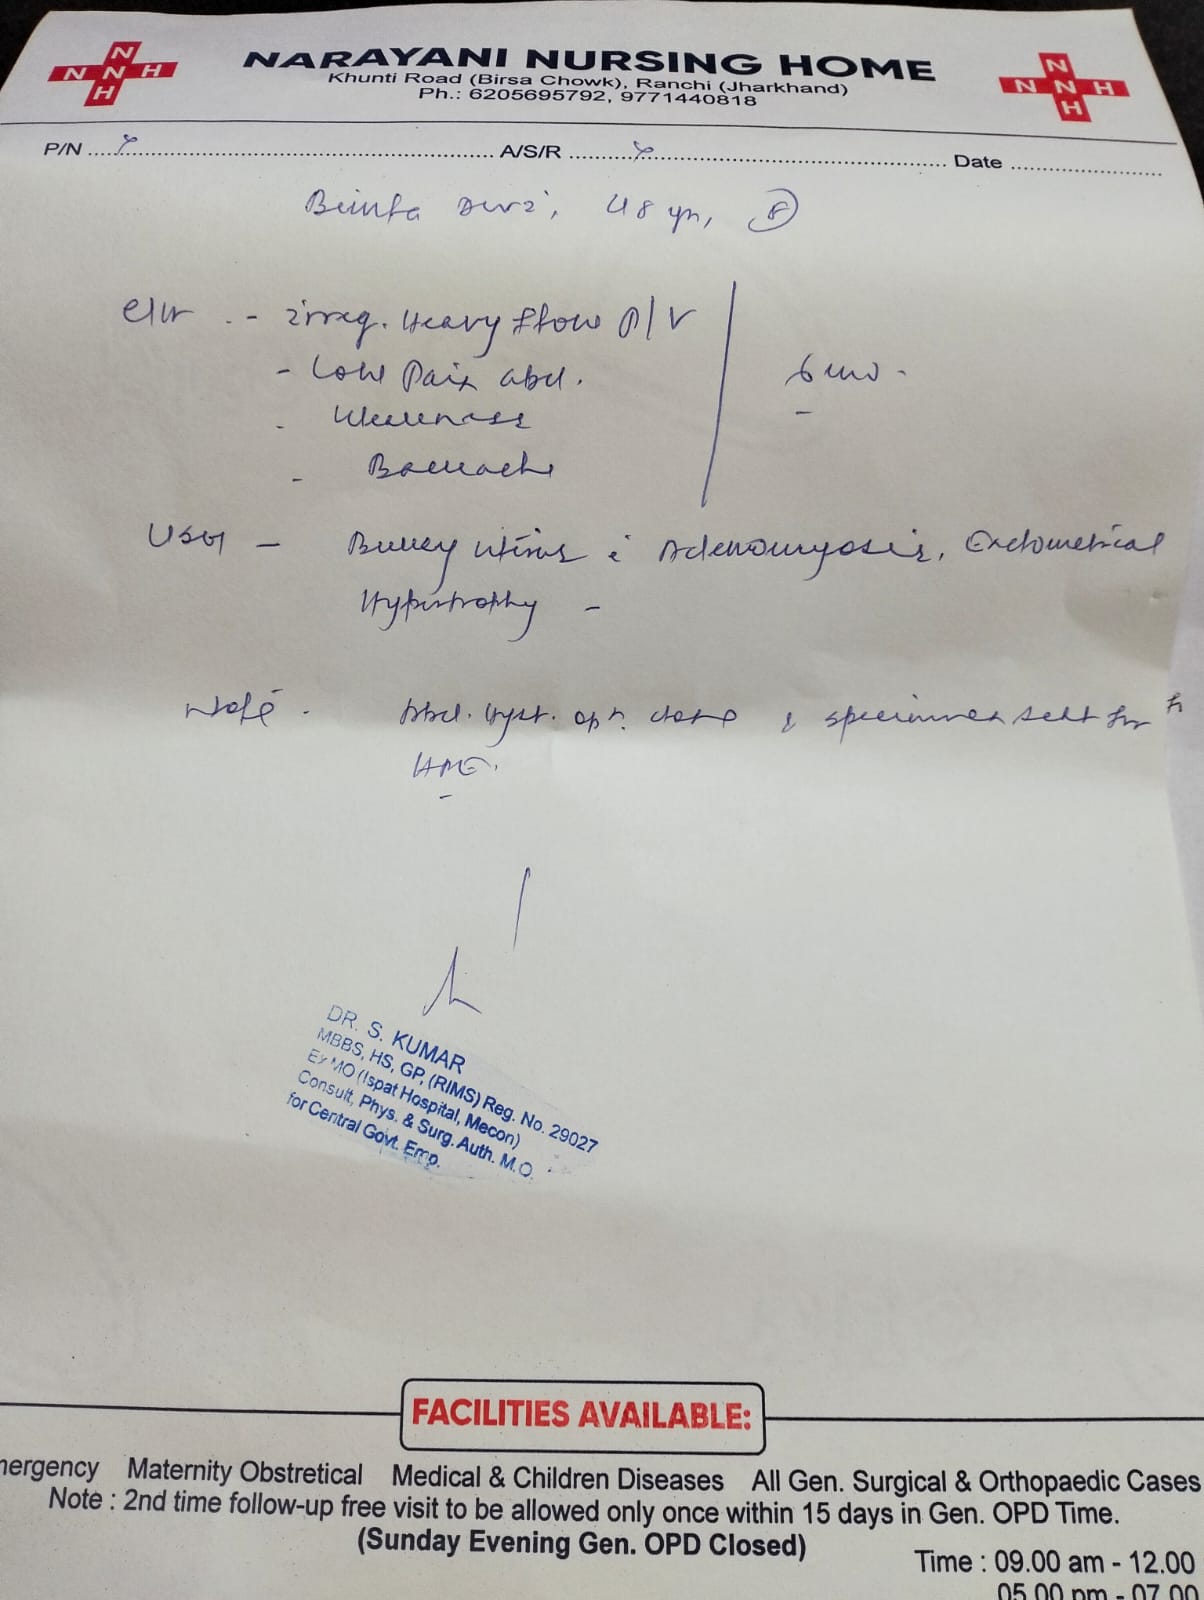 N
N N H
H
NARAYANI NURSING HOME
Khunti Road (Birsa Chowk), Ranchi (Jharkhand)
Ph.: 6205695792, 9771440818
N
N N H
H
P/N .......... A/S/R .......... Date ..........
Devi, 48 yr, F
- irreg. Heavy flow P/V
- Low Pain abd.
6 mo.
- Weakness
- Backache
USG - Bulky uterus c Adenomyosis, Endometrical
Hypertrophy -
Note - Abd. Hyst. opn. done & specimen sent for
HPE.
DR. S. KUMAR
MBBS, HS, GP, (RIMS) Reg. No. 29027
Ex MO (Ispat Hospital, Mecon)
Consult, Phys. & Surg. Auth. M.O.
for Central Govt. Emp.
FACILITIES AVAILABLE:
mergency Maternity Obstretical Medical & Children Diseases All Gen. Surgical & Orthopaedic Cases
Note : 2nd time follow-up free visit to be allowed only once within 15 days in Gen. OPD Time.
(Sunday Evening Gen. OPD Closed)
Time : 09.00 am - 12.00
05.00 pm - 07.00